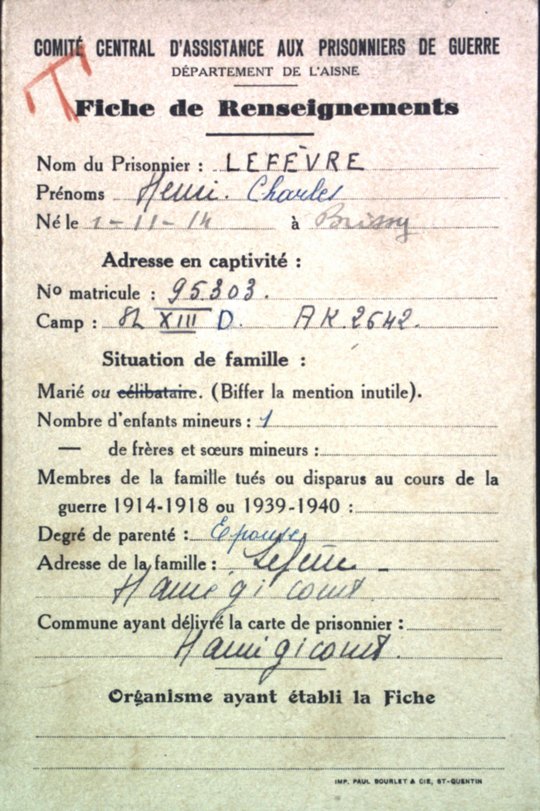 COMITÉ CENTRAL D'ASSISTANCE AUX PRISONNIERS DE GUERRE
DÉPARTEMENT DE L'AISNE
T
Fiche de Renseignements
Nom du Prisonnier : LEFÈVRE
Prénoms Henri. Charles
Né le 1-11-14 à Brissy
Adresse en captivité :
No matricule : 95303.
Camp : XIII D. AK. 2642.
Situation de famille :
Marié ou célibataire. (Biffer la mention inutile).
Nombre d'enfants mineurs : 1
— de frères et sœurs mineurs :
Membres de la famille tués ou disparus au cours de la
guerre 1914-1918 ou 1939-1940 :
Degré de parenté : Epouse
Adresse de la famille :
Hamégicourt
Commune ayant délivré la carte de prisonnier :
Hamégicourt.
Organisme ayant établi la Fiche
IMP. PAUL BOURLET & CIE, ST-QUENTIN